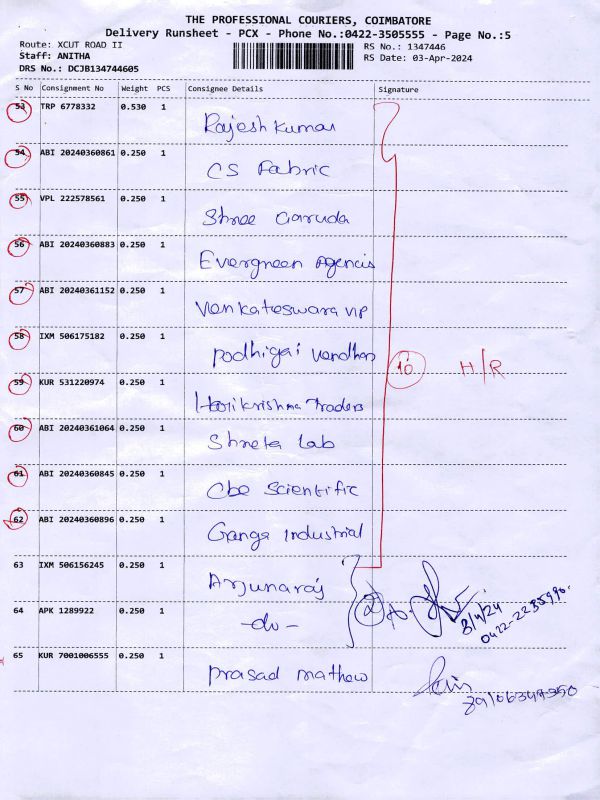 THE PROFESSIONAL COURIERS, COIMBATORE
Delivery Runsheet - PCX - Phone No.:0422-3505555 - Page No.:5
Route: XCUT ROAD II
Staff: ANITHA
DRS No.: DCJB134744605
RS No.: 1347446
RS Date: 03-Apr-2024
S No Consignment No Weight PCS Consignee Details Signature
53 TRP 6778332 0.530 1 Rajesh Kumar
54 ABI 20240360861 0.250 1 CS Fabric
55 VPL 222578561 0.250 1 Shree Garuda
56 ABI 20240360883 0.250 1 Evergreen Agencis
57 ABI 20240361152 0.250 1 Venkateswara
58 IXM 506175182 0.250 1 Podhigai
10 H/R
59 KUR 531220974 0.250 1 Harikrishna Traders
60 ABI 20240361064 0.250 1 Lab
61 ABI 20240360845 0.250 1 Cbe Scientific
62 ABI 20240360896 0.250 1 Ganga Industrial
63 IXM 506156245 0.250 1 Arjunaraj
64 APK 1289922 0.250 1 -do- 2
65 KUR 7001006555 0.250 1 Prasad Mathew